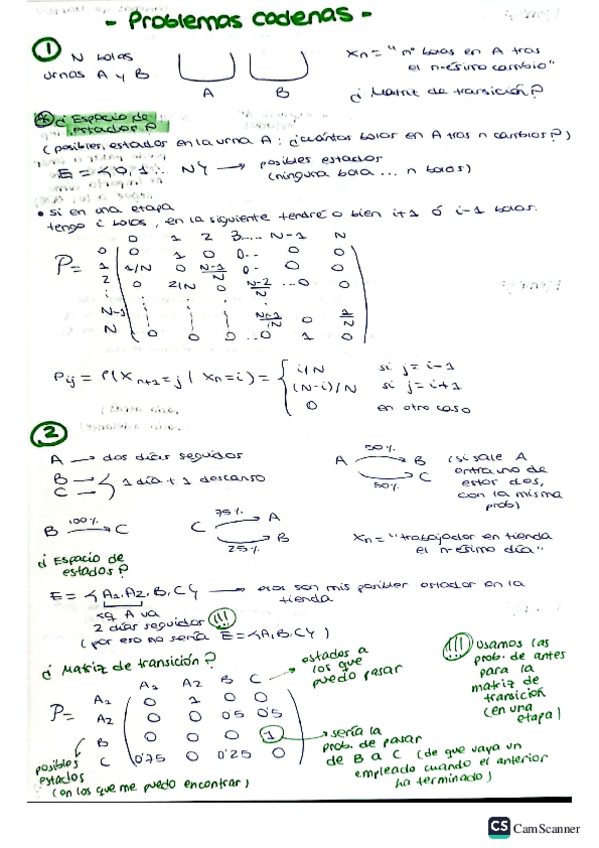 - Problemas cadenas -
① N bolas
urnas A y B
A B
Xn = "nº bolas en A tras
el n-ésimo cambio"
¿Matriz de transición?
¿Espacio de
estados?
(posibles estados en la urna A: ¿cuántas bolas en A tras n cambios?)
E = {0, 1... N} → posibles estados
(ninguna bola ... n bolas)
• si en una etapa
tengo i bolas, en la siguiente tendré o bien i+1 ó i-1 bolas.
0 1 2 3..... N-1 N
P= 0 0 1 0 0.. 0 0
1 1/N 0 N-1/N 0.. 0 0
2 0 2/N 0 N-2/N ...0 0
N-1 N-1/N 0 1/N
N 0 0 0 ..0 1 0
Pij = P(Xn+1=j | Xn=i) = { i/N si j=i-1
(N-i)/N si j=i+1
0 en otro caso
②
A → dos días seguidos
B →
C → } 1 día + 1 descanso
A 50% → B
50% → C
(si sale A
entra uno de
estos dos,
con la misma
prob)
B 100% → C
C 75% → A
25% → B
Xn = "trabajador en tienda
el n-ésimo día"
¿Espacio de
estados?
E = {A1, A2, B, C} → esos son mis posibles estados en la
tienda
sq A va
2 días seguidos (!!!)
(por eso no sería E={A,B,C})
¿Matriz de transición?
estados a
los que
puedo pasar
(!!!) Usamos las
prob. de antes
para la
matriz de
transición
(en una
etapa)
A1 A2 B C
P= A1 0 1 0 0
A2 0 0 0'5 0'5
B 0 0 0 1
C 0'75 0 0'25 0
posibles
estados
(en los que me puedo encontrar)
sería la
prob. de pasar
de B a C (de que vaya un
empleado cuando el anterior
ha terminado)
CS CamScanner